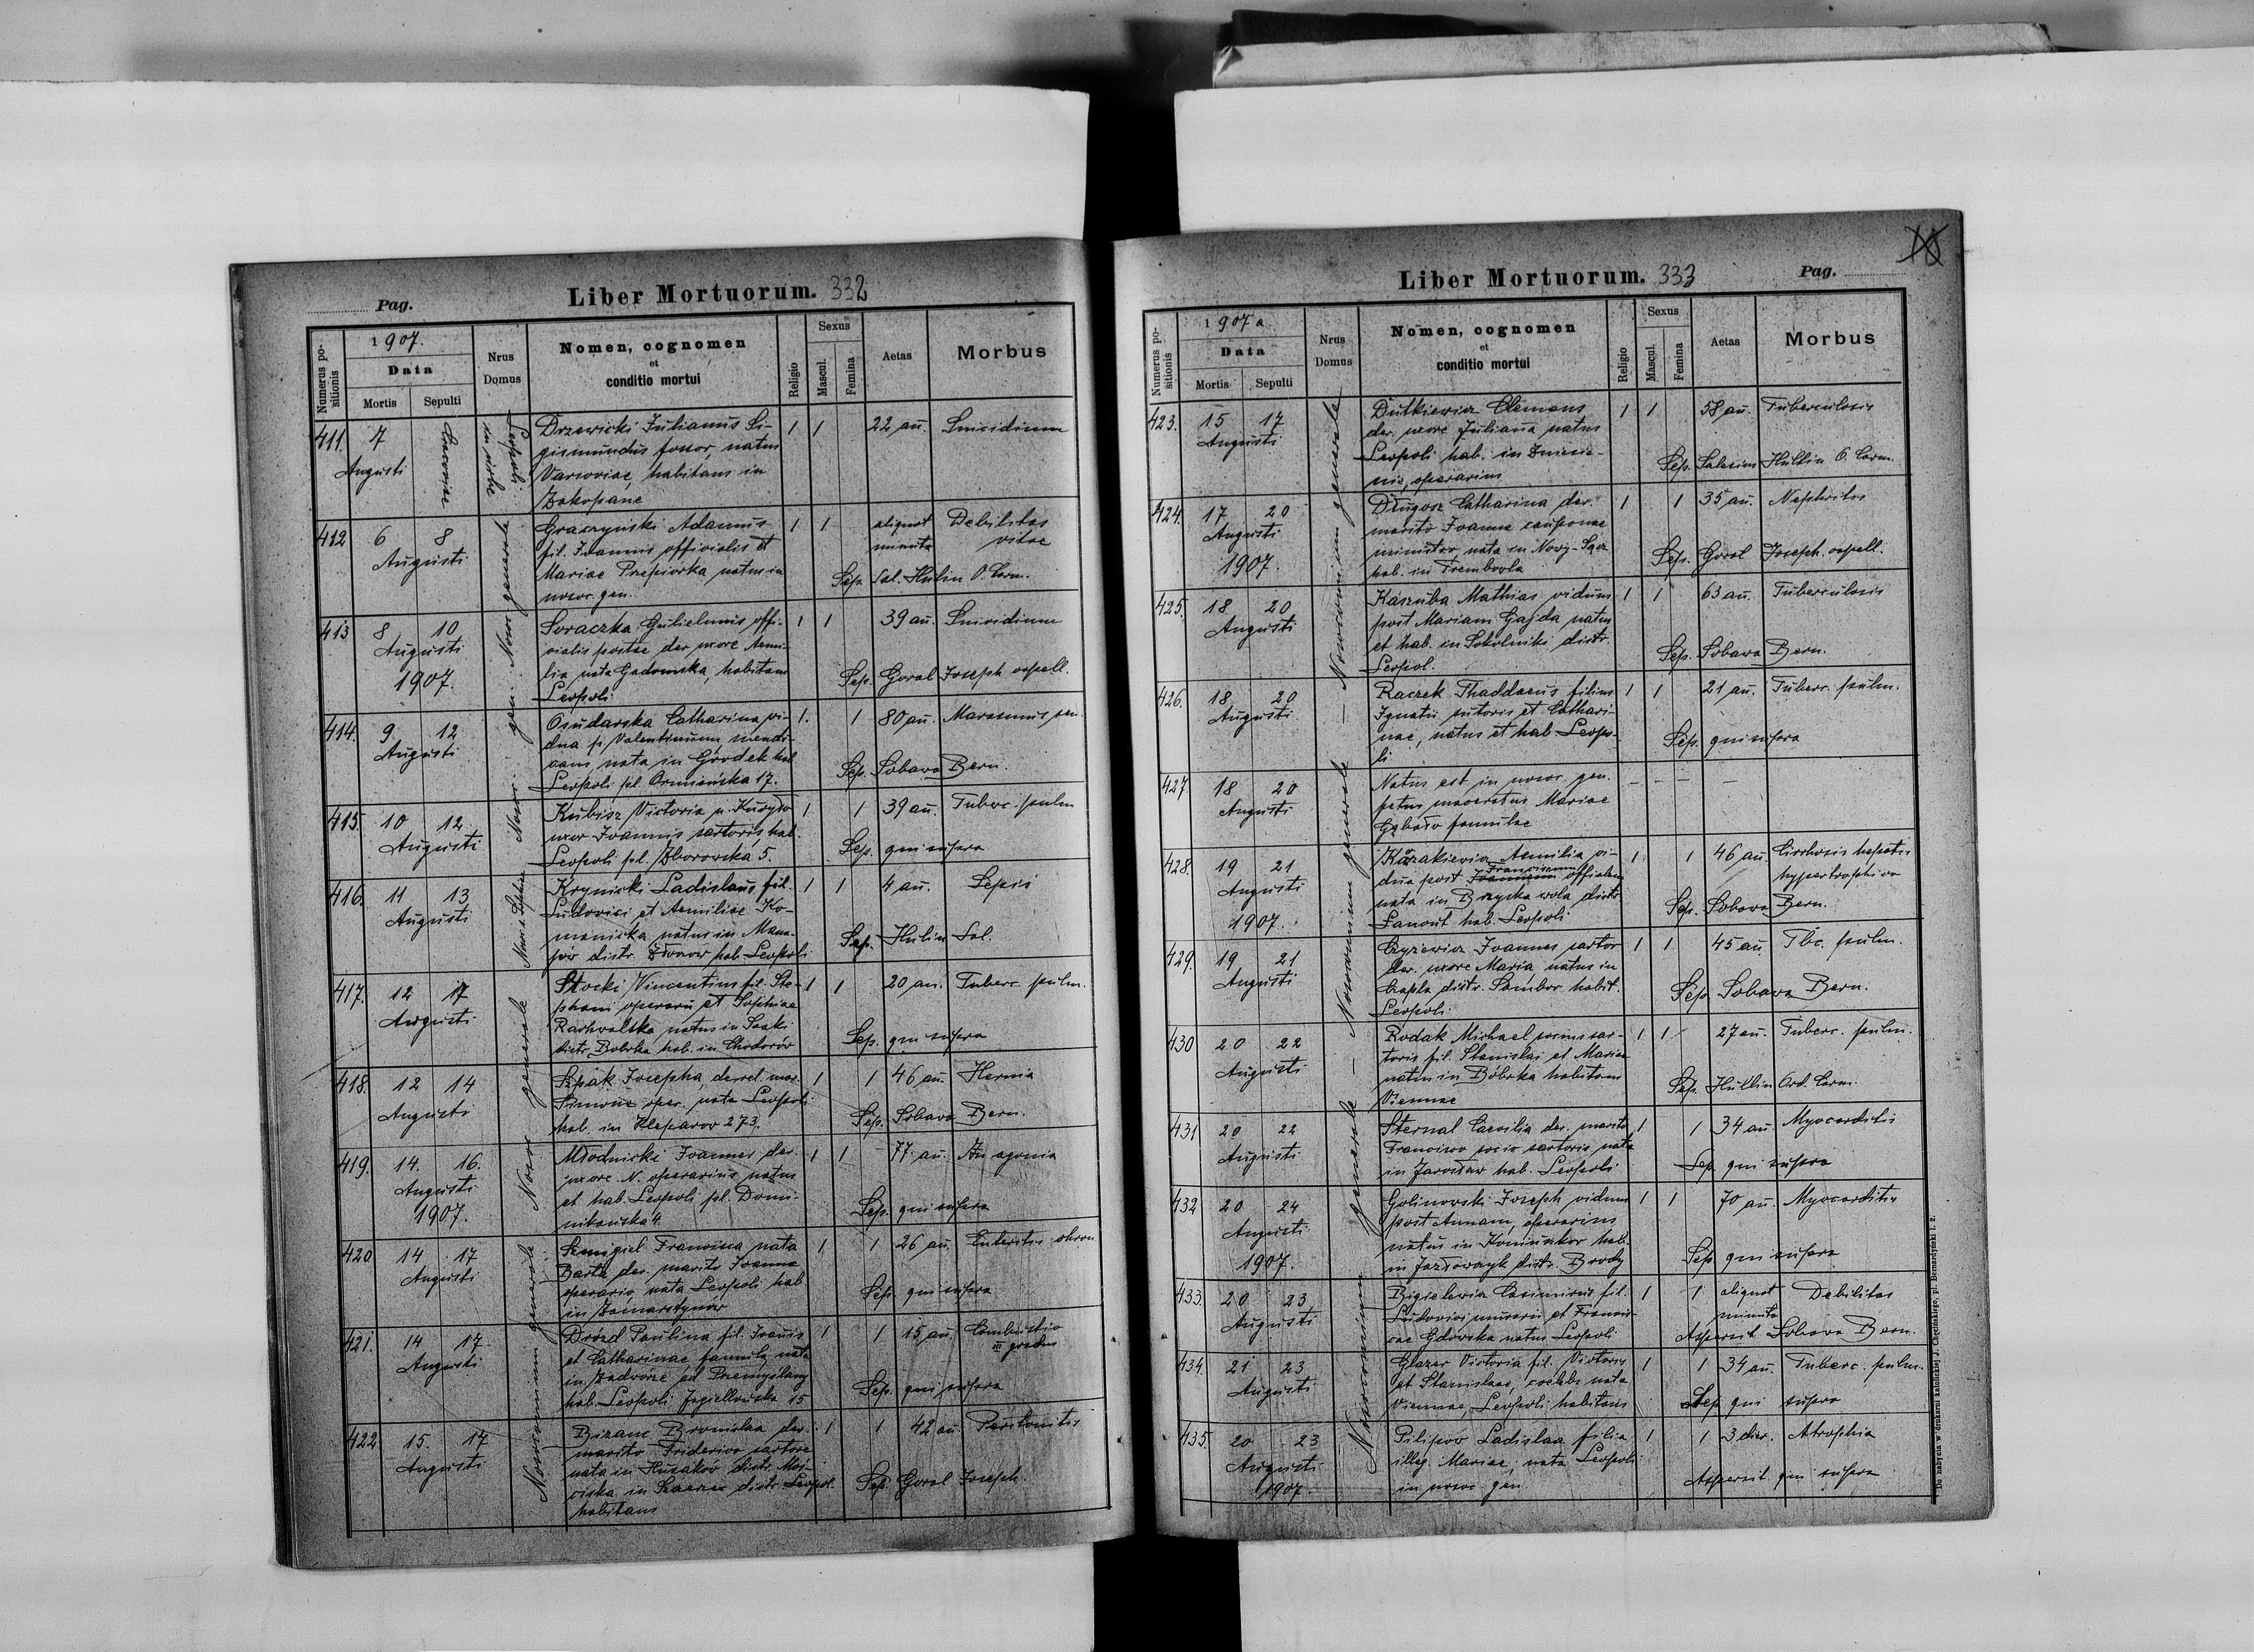 Pag.
Liber Mortuorum. 332
Numerus positionis
1907.
Data
Mortis
Sepulti
Nrus Domus
Nomen, cognomen
et
conditio mortui
Religio
Sexus
Mascul.
Femina
Aetas
Morbus
411. 7 Augusti
Leopoli
Drzewicki Julianus Si- 1 1 22 an. Suicidium
gismundus fossor, natus
Varsoviae, habitans in
Zakopane
412 6 8 Augusti
Graczyński Adamus 1 1 aliquot minuta Debilitas vitae
fil. Joannis officialis et
Mariae Przepiorka natus in
nosoc. gen.
Sep. Sal. Hulin O. Carm.
413 8 10 Augusti 1907.
Soraczka Gulielmus offi- 1 1 39 an. Suicidium
cialis postae der. uxore Aemi-
lia nata Gadomska, habitans
Leopoli
Sep. Goral Joseph capell.
414. 9. 12 Augusti
Osudarska Catharina vi- 1. 1 80 an. Marasmus sen.
dua p. Valentinum mendi-
cans, nata in Grodek hab.
Leopoli pl. Ormiańska 17.
Sep. Sobawa Bern.
415. 10 12 Augusti
Kubisz Victoria n. Kurydo 1 1 39 an. Tuberc. pulm
uxor Joannis sartoris, hab.
Leopoli pl. Zborowska 5.
Sep. qui supra
416. 11 13 Augusti
Krynicki Ladislaus fil. 1 1 4 an. Sepsis
Ludovici et Aemiliae Ko-
manicka natus in Mana-
jow distr. Złoczow hab. Leopoli
Sep. Hulin Sal.
417. 12 17 Augusti
Stocki Vincentius fil. Ste- 1 1 20 an. Tuberc. pulm.
phani operarii et Sophiae
Rachwalska natus in Saski
distr. Bobrka hab. in Chodorów
Sep. qui supra
418. 12 14 Augusti
Szpak Josepha, derel. mar. 1 1 46 an. Hernia
Simone oper. nata Leopoli
hab. in Kleparow 273.
Sep. Sobawa Bern.
419. 14. 16. Augusti 1907.
Młodnicki Joannes der. 1 1 77 an. In agonia
uxore N. operarius natus
et hab. Leopoli pl. Domi-
nikańska 4.
Sep. qui supra
420 14 17 Augusti
Szmigiel Francisca nata 1 1 26 an. Enteritis chron.
Barta der. marito Joanne
operario, nata Leopoli hab.
in Zamarstynów
Sep. qui supra
421. 14 17 Augusti
Drózd Paulina fil. Joanis 1 1 15 an. Combustio III gradus
et Catharinae famula, nata
in Zadwórze ad Przemyślany
hab. Leopoli Jagiellońska 15
Sep. qui supra
422 15. 17 Augusti
Bizanc Bronislaa der. 1 1 42 an. Peritonitis
marito Friderico sartore
nata in Husaków distr. Moś-
ciska in Szczerzec distr. Leopol.
habitans
Sep. Goral Joseph.
Nosocomium generale
Liber Mortuorum. 333
Pag.
Numerus positionis
1907 a.
Data
Mortis
Sepulti
Nrus Domus
Nomen, cognomen
et
conditio mortui
Religio
Sexus
Mascul.
Femina
Aetas
Morbus
423. 15 17 Augusti
Dutkiewicz Clemens 1 1 58 an. Tuberculosis
der. uxore Juliana natus
Leopoli hab. in Zniesie-
nie, operarius
Sep. Salesius Hullin O. Carm.
424. 17 20 Augusti 1907.
Długosz Catharina der. 1 1 35 an. Nephritis
marito Joanne cauponae
ministro, nata in Nowy-Sącz
hab. in Trembowla
Sep. Goral Joseph. capell.
425. 18 20 Augusti
Kaszuba Mathias viduus 1 1 63 an. Tuberculosis
post Mariam Gajda natus
et hab. in Sokolniki distr.
Leopol.
Sep. Sobawa Bern.
426. 18 20 Augusti
Raczek Thaddaeus filius 1 1 21 an. Tuberc. pulm.
Ignatii sutoris et Cathari-
nae, natus et hab. Leopo-
li
Sep. qui supra
427. 18 20 Augusti
Natus est in nosoc. gen. – – – –
fetus maceratus Mariae
Gąbało famulae
428. 19 21 Augusti 1907.
Kozakiewicz Aemilia vi- 1 1 46 an. Cirrhosis hepatis
dua post Joannem Franciscum officialem hypertrophica
nata in Brzyska wola distr.
Łancut hab. Leopoli
Sep. Sobawa Bern.
429. 19 21 Augusti
Czyżewicz Joannes sartor 1 1 45 an. Tbc. pulm.
der. uxore Maria, natus in
Czapla distr. Sambor habit.
Leopoli
Sep. Sobawa Bern.
430 20 22 Augusti
Rodak Michael socius sar- 1 1 27 an. Tuberc. pulm.
toris fil. Stanislai et Mariae
natus in Bóbrka habitans
Viennae
Sep. Hullin Ord. Carm.
431 20 22 Augusti
Sternal Caecilia der. marito 1 1 34 an. Myocarditis
Francisco socio sartoris, nata
in Jarosław hab. Leopoli
Sep. qui supra
432 20 24 Augusti 1907.
Golinowski Joseph viduus 1 1 70 an. Myocarditis
post Annam, operarius
natus in Koniuszkow hab.
in Jazłowczyk distr. Brody
Sep. qui supra
433. 20 23 Augusti
Bigielewicz Casimirus fil. 1 1 aliquot minuta Debilitas
Ludovici murarii et Francis-
cae Gdowska natus Leopoli
Aspersit Sobawa Bern.
434. 21 23 Augusti
Glazer Victoria fil. Victoris 1 1 34 an. Tuberc. pulm.
et Stanislaae, coelebs nata
Viennae, Leopoli habitans
Sep. qui supra
435. 20 23 Augusti 1907.
Pilipow Ladislaa filia 1 1 3 dier. Atrophia
illeg. Mariae, nata Leopoli
in nosoc. gen.
Aspersit qui supra
Nosocomium generale – Nosocomium generale – Nosocomium generale
Do nabycia w drukarni katolickiej J. Chęcińskiego, pl. Bernardyński l. 2.